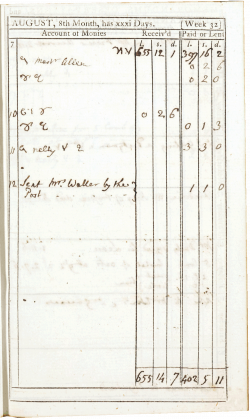 AUGUST, 8th Month, has xxxi Days. Week 32
Account of Monies Receiv'd Paid or Lent
l. s. d. l. s. d.
7. 655 12 1 397 16 2
0 2 6
0 2 0
10 0 2 6
0 1 3
11 3 3 0
12 Sent Mrs. Waller by the Post 1 1 0
655 14 7 402 5 11